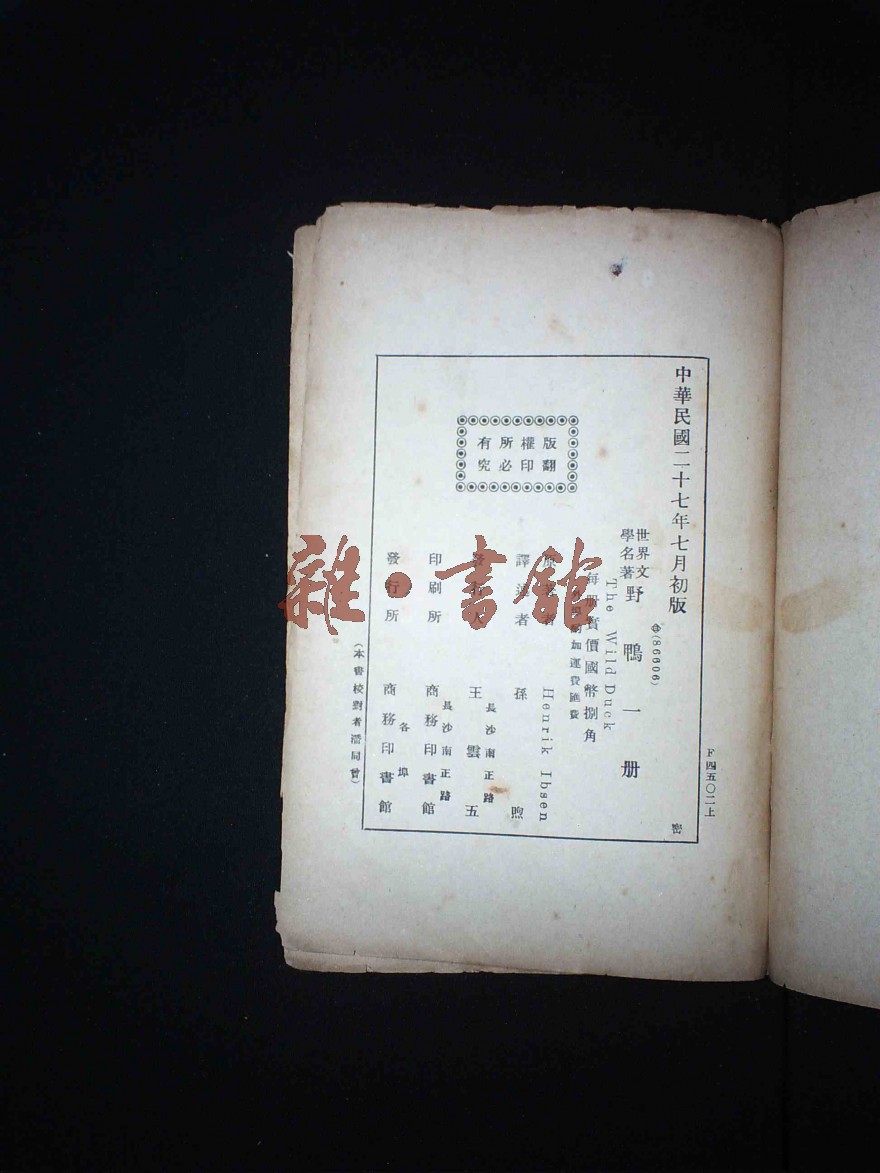 中華民國二十七年七月初版
F四五〇二上
(86606)
世界文學名著
野鴨一册
The Wild Duck
每册實價國幣捌角
外埠酌加運費匯費
版權所有
翻印必究
原著者 Henrik Ibsen
譯述者 孫煦
發行人 王雲五
長沙南正路
印刷所 商務印書館
長沙南正路
發行所 商務印書館
各埠
(本書校對者潘同曾)
雜·書館